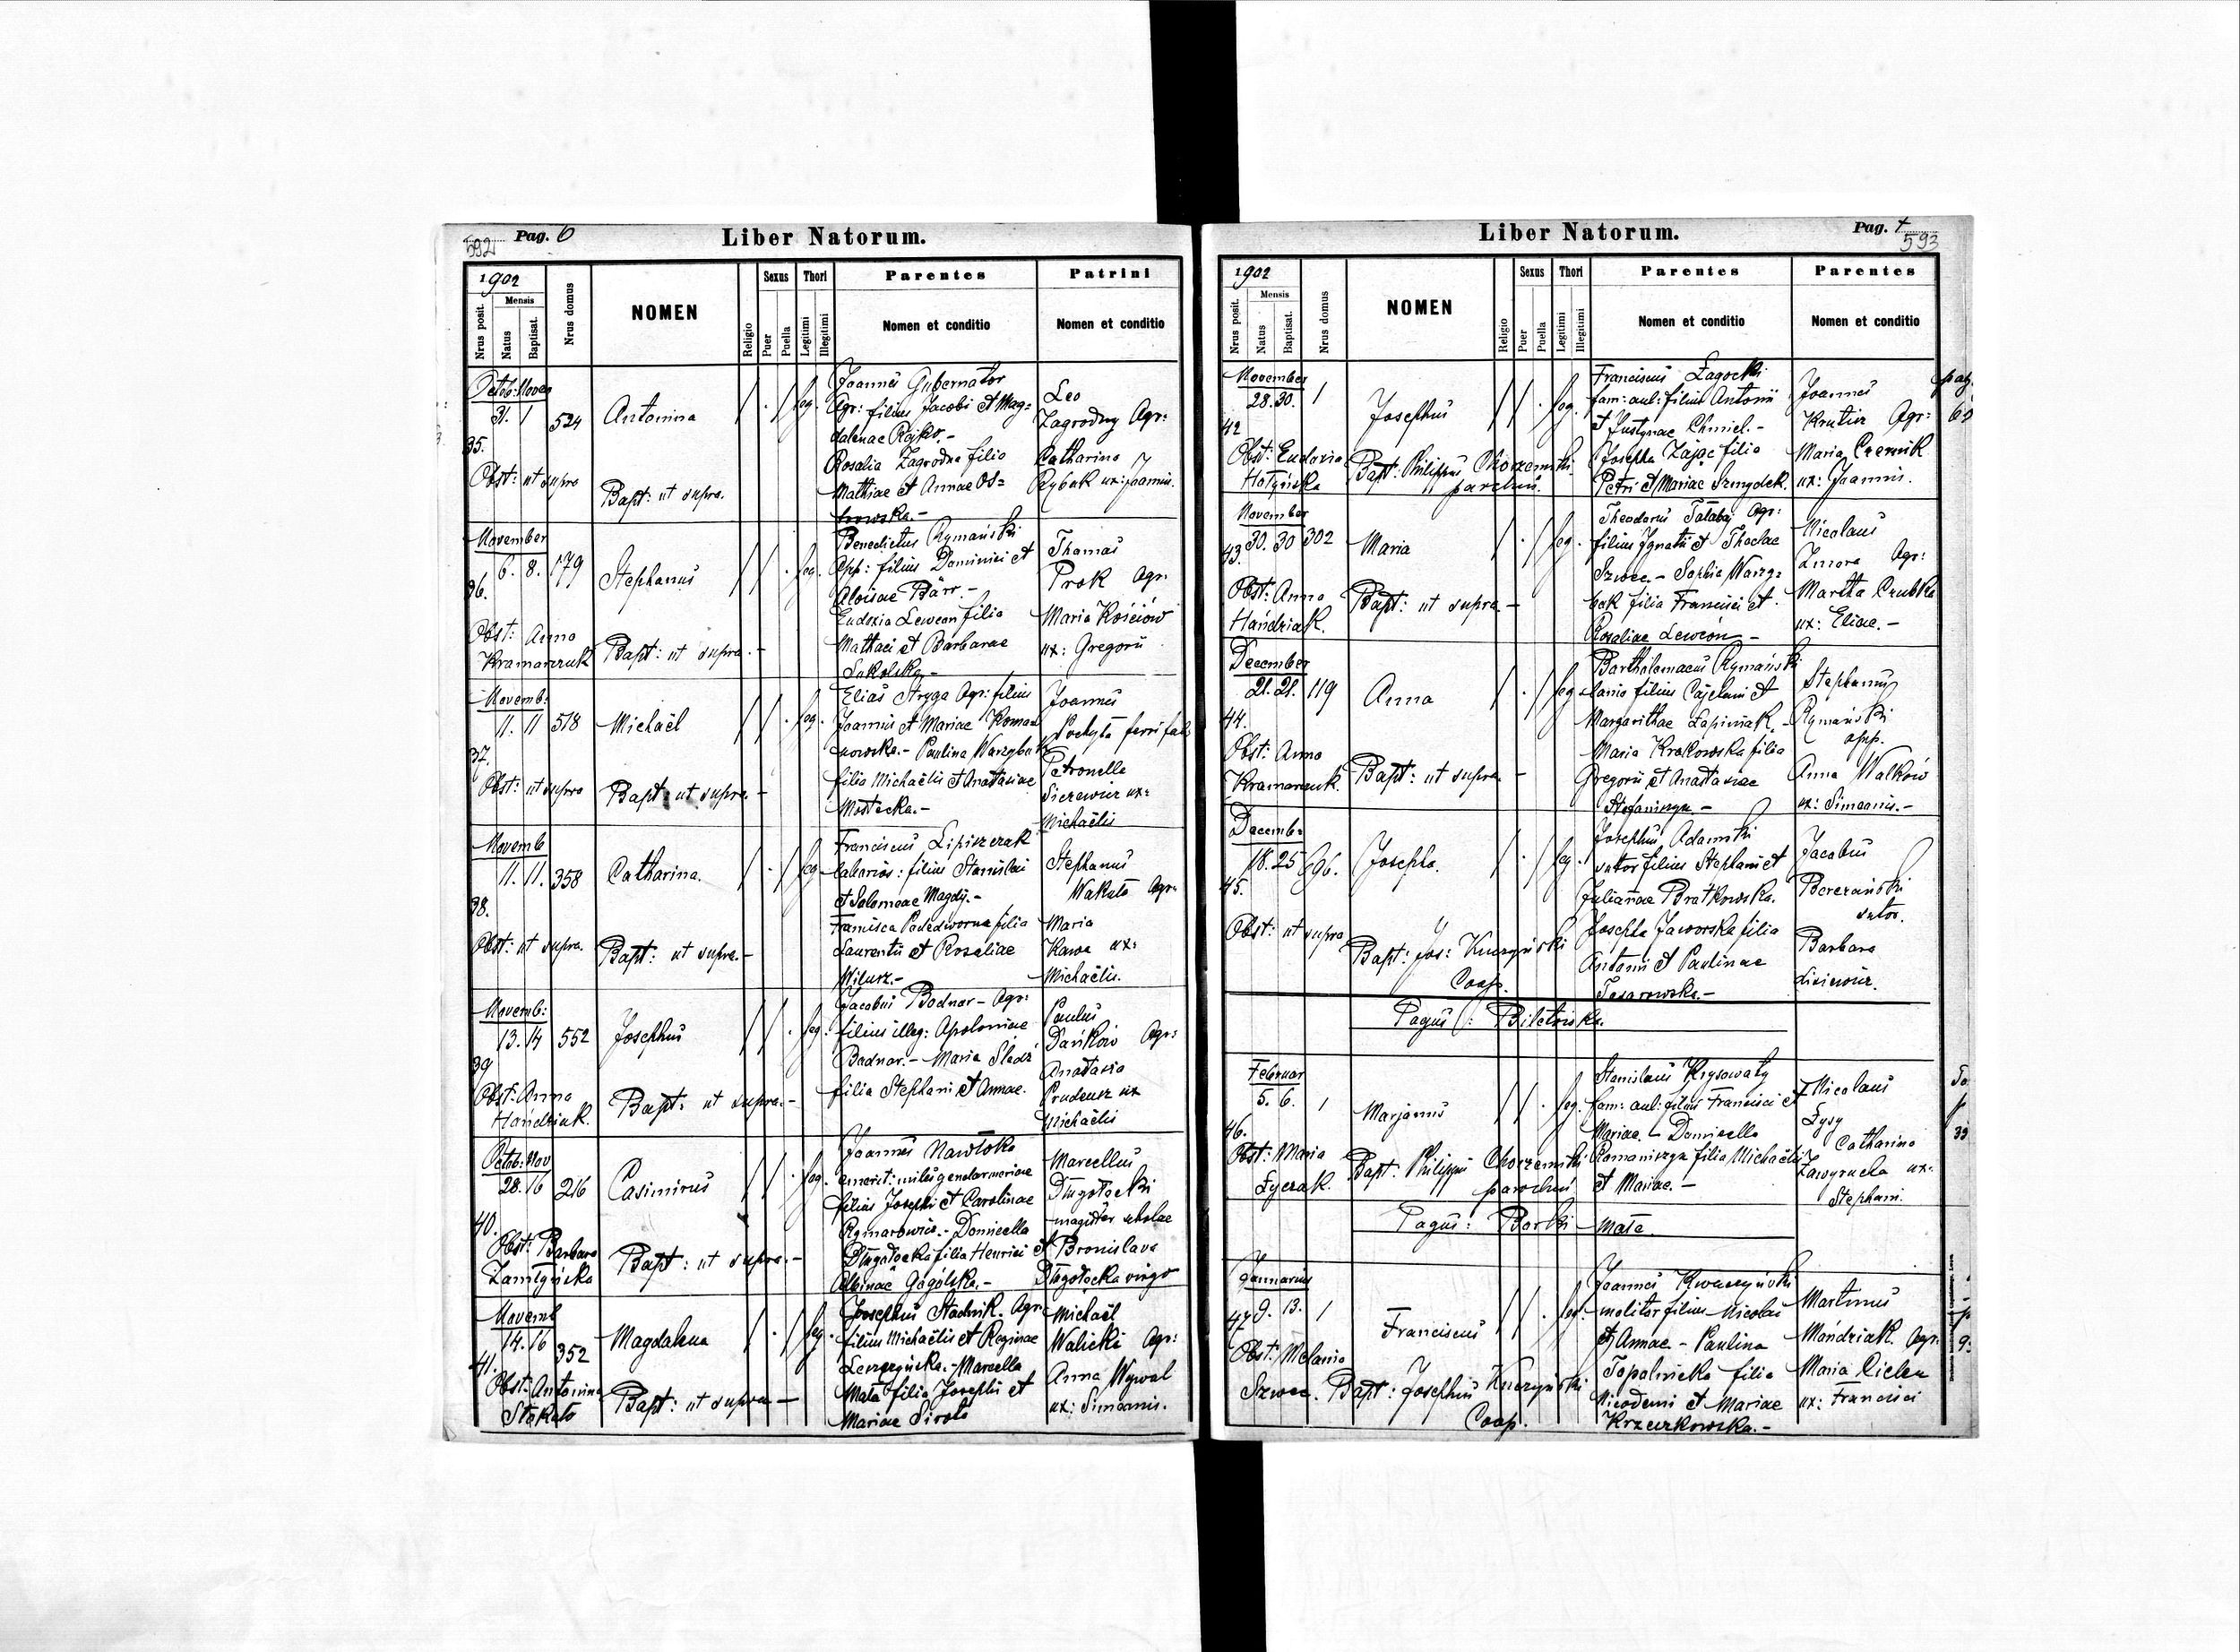 592
Pag. 6
Liber Natorum.
1902
Mensis
Nrus posit.
Natus
Baptisat.
Nrus domus
NOMEN
Religio
Sexus
Puer
Puella
Thori
Legitimi
Illegitimi
Parentes
Nomen et conditio
Patrini
Nomen et conditio
Octob: Novem
31. 1
35.
524
Antonina
leg.
Obst: ut supra
Bapt: ut supra.
Joannes Gubernator
Agr: filius Jacobi et Mag=
dalenae Rojko.-
Rosalia Zagrodna filia
Mathiae et Annae Os=
trowska.-
Leo
Zagrodny Agr:
Catharina
Rybak ux: Joannis.
November
6. 8.
36.
179
Stephanus
leg.
Obst: Anna
Kramarczuk
Bapt: ut supra.-
Benedictus Rymański
opp: filius Dominici et
Aloisae Bärr.-
Eudoxia Lewcon filia
Mathaei et Barbarae
Sokolska.-
Thomas
Prok Agr:
Maria Kościów
ux: Gregorii
Novemb:
11. 11
37.
518
Michaël
leg.
Obst: ut supra
Bapt: ut supra.-
Elias Stryga Agr: filius
Joannis et Mariae Roma=
nowska.- Paulina Warzybok
filia Michaëlis et Anastasiae
Mostecka.-
Joannes
Pochyta ferri fab
Petronella
Sicrewicz ux:
Michaëlis
Novemb
11. 11.
38.
358
Catharina.
leg.
Obst: ut supra.
Bapt: ut supra.-
Franciscus Lipiszczak
labarios: filius Stanislai
et Salomeae Magdij.-
Francisca Padedworna filia
Laurentii et Rosaliae
Wilusz.-
Stephanus
Wakuta Agr:
Maria
Kawa ux:
Michaëlis.
Novemb:
13. 14
39
552
Josephus
leg.
Obst: Anna
Hańdziuk.
Bapt: ut supra.-
Jacobus Bodnar- Agr:
filius illeg: Apoloniae
Bodnar.- Maria Śledź
filia Stephani et Annae.
Paulus
Dańków Agr:
Anastasia
Prudeusz ux
Michaëlis
Octob: Nov
28. 16
40.
216
Casimirus
leg.
Obst: Barbara
Zamłyńska
Bapt: ut supra.-
Joannes Nawłoka
emerit: miles gendarmeriae
filius Josephi et Carolinae
Rymarowicz.- Domicella
Długołecka filia Henrici et
Albinae Gogólska.-
Marcellus
Długołęcki
magister scholae
Bronislava
Długołęcka virgo
Novemb
14. 16
41.
352
Magdalena
leg.
Obst: Antonina
Stakuta
Bapt: ut supra-
Josephus Stadnik. Agr:
filius Michaëlis et Reginae
Leszczyńska.- Marcella
Mała filia Josephi et
Mariae Sirota
Michaël
Walicki Agr:
Anna Wywał
ux: Simeonis.
Liber Natorum.
Pag. 7
593
1902
Mensis
Nrus posit.
Natus
Baptisat.
Nrus domus
NOMEN
Religio
Sexus
Puer
Puella
Thori
Legitimi
Illegitimi
Parentes
Nomen et conditio
Parentes
Nomen et conditio
November
28. 30.
42
1
Josephus
leg.
Obst: Eudoxia
Hołyńska
Bapt: Philippus Chorzemski
parochus.
Franciscus Zagocki
fam: aul: filius Antonii
et Justynae Chmiel.-
Josepha Zając filia
Petri et Mariae Szmydek.
Joannes
Krutix Agr:
Maria Czernik
ux: Joannis.
November
30. 30
43.
302
Maria
leg.
Obst: Anna
Hańdziak.
Bapt: ut supra-
Theodorus Tataboj Agr:
filius Ignatii et Theclae
Szwec.- Sophia Warzy=
bok filia Francisci et
Rosaliae Lewcón-
Nicolaus
Zmora Agr:
Martha Czubka
ux: Eliae.-
December
21. 21.
44.
119
Anna
leg
Obst: Anna
Kramarczuk.
Bapt: ut supra.-
Bartholomaeus Rymański
lanio filius Cajetani et
Margarithae Łapiniak.-
Maria Krakowska filia
Gregorii et Anastasiae
Stefaniszyn-
Stephanus
Rymański
opp.
Anna Walków
ux: Simeonis.-
Decemb:
18. 25
45.
696.
Josepha.
leg.
Obst: ut supra
Bapt: Jos: Kuczyński
Coop.
Josephus Adamski
sutor filius Stephani et
Julianae Bratkowska.
Josepha Jaworska filia
Antonii et Paulinae
Tosarowska.-
Jacobus
Berezański
sutor.
Barbara
Lisiewicz.
Pagus: Biletówka.
Februar
5. 6.
46.
1
Marjanus
leg.
Obst: Maria
Łyczak.
Bapt. Philippus Chorzemski
parochus
Stanislaus Krysowaty
fam: aul: filius Francisci et
Mariae.- Domicella
Romaniszyn filia Michaëlis
et Mariae.-
Nicolaus
Łysy
Catharina
Zawyrucha ux:
Stephani.
Pagus: Borki Mała.
Januarius
9. 13.
47
1
Franciscus
leg.
Obst: Melania
Szwec.
Bapt: Josephus Kuczyński
Coop.
Joannes Kwaczyński
molitor filius Nicolai
et Annae - Paulina
Topolnicka filia
Nicodemi et Mariae
Krzeczkowska.-
Martinus
Mońdziak. Agr.
Maria Cielen
ux: Francisci